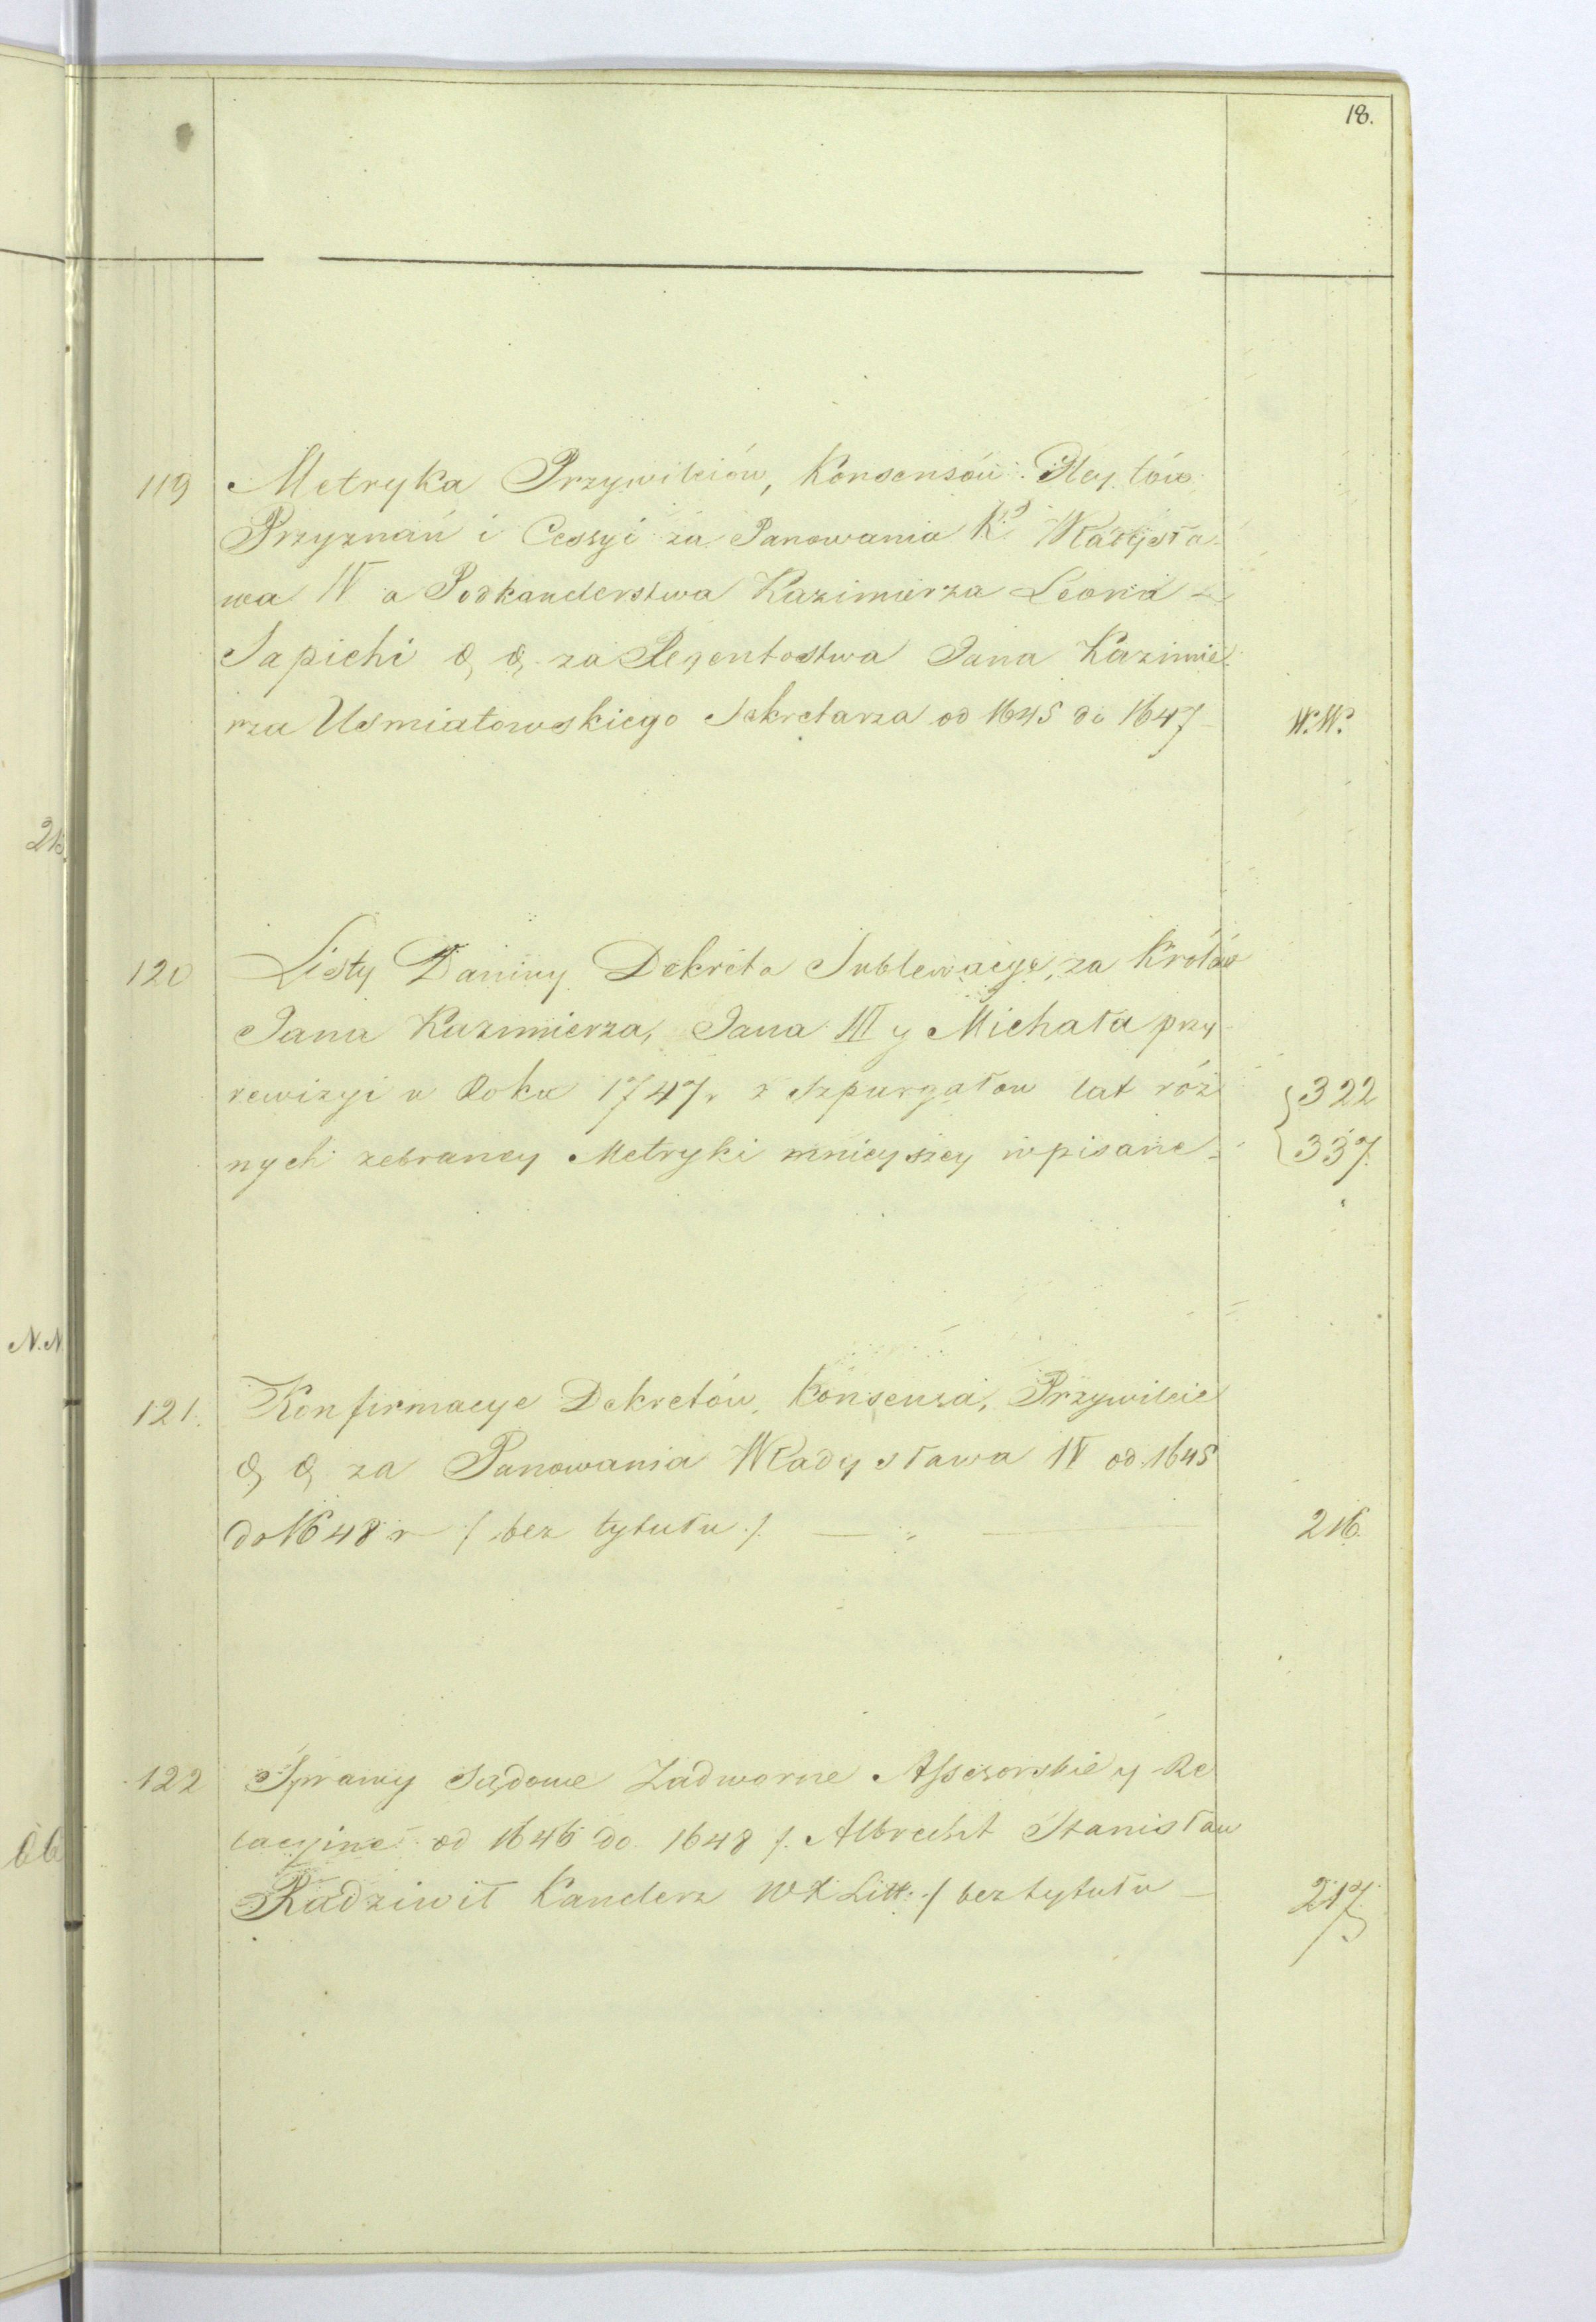 18.
119 Metryka Przywileiów, Konsensów Gleytów
Przyznań i Cessyi za Panowania K. Władysła-
wa IV a Podkanclerstwa Kazimierza Leona
Sapiehi & & za Regentostwa Jana Kazimie-
rza Usmiałowskiego Sekretarza od 1645 do 1647 W.W.
120 Listy Daniny Dekreta Sublewacye, za Królów
Jana Kazimierza, Jana III y Michała przy
rewizyi w Roku 1747. z Szpurgałow lat róż 322
nych zebraney Metryki mnieyszey wpisane 337
121. Konfirmacye Dekretów, Konsensa, Przywileie
& & za Panowania Władysława IV od 1645
do 1648 r /bez tytułu./ 216.
122 Sprawy Sądowe Zadworne Assesorskie y Re
lacyine od 1646 do 1648 /. Albrecht Stanisław
Radziwił Kanclerz W X Litt: / bez tytułu 217
21
N.N